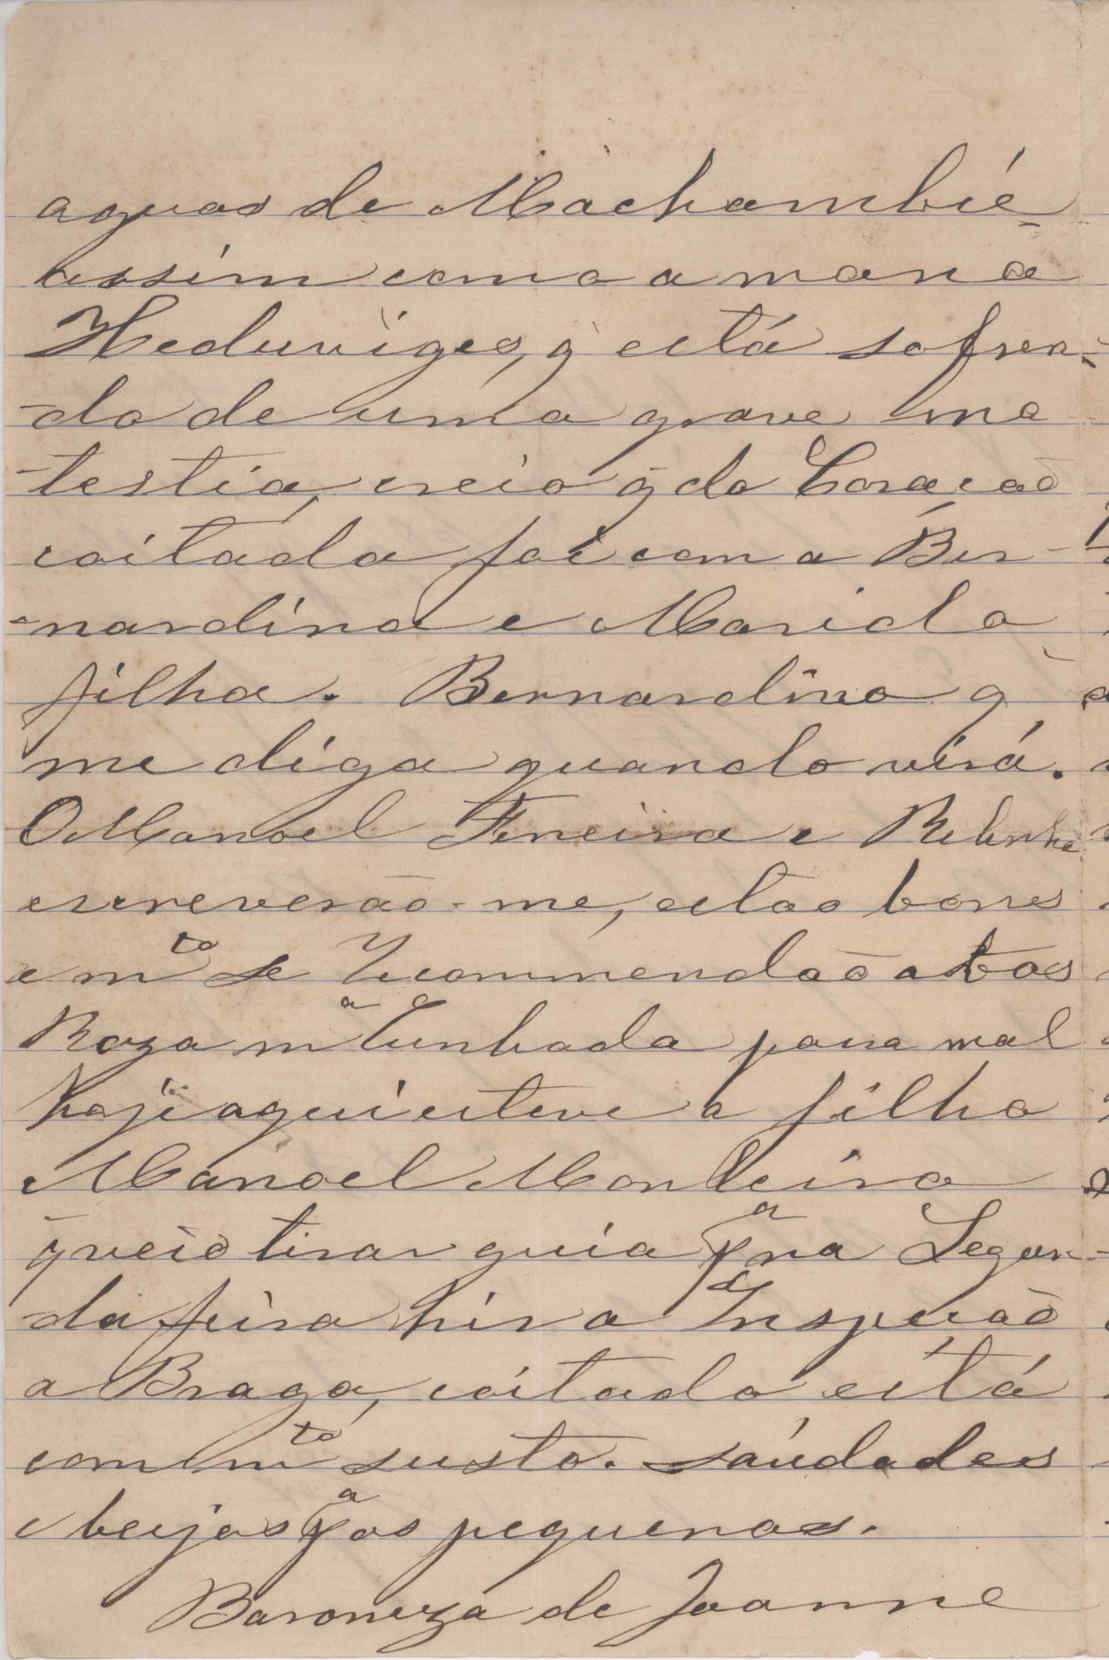 aguas de Machambíe
assim como a mana
Heduviges, q̃ está sofren-
-do de uma grave mo
-lestia, creio q̃ do Coração
coitada foi com a Ber-
-nardina e Maria la
filha. Bernardino q̃
me diga quando virá.
O Manoel Ferreira e
escreverão-me, estão bons
e m.to se recommendão a tos
Roza m.a Cunhada pouca mal
hoje aqui esteve o filho
Manoel Monteiro
q̃ veio tirar guia p.a na Segun-
da feira hir a Inspecão
a Braga, coitado está
com m.to susto. saúdades
e beijos p.a os pequenos.
Baroneza de Joanne